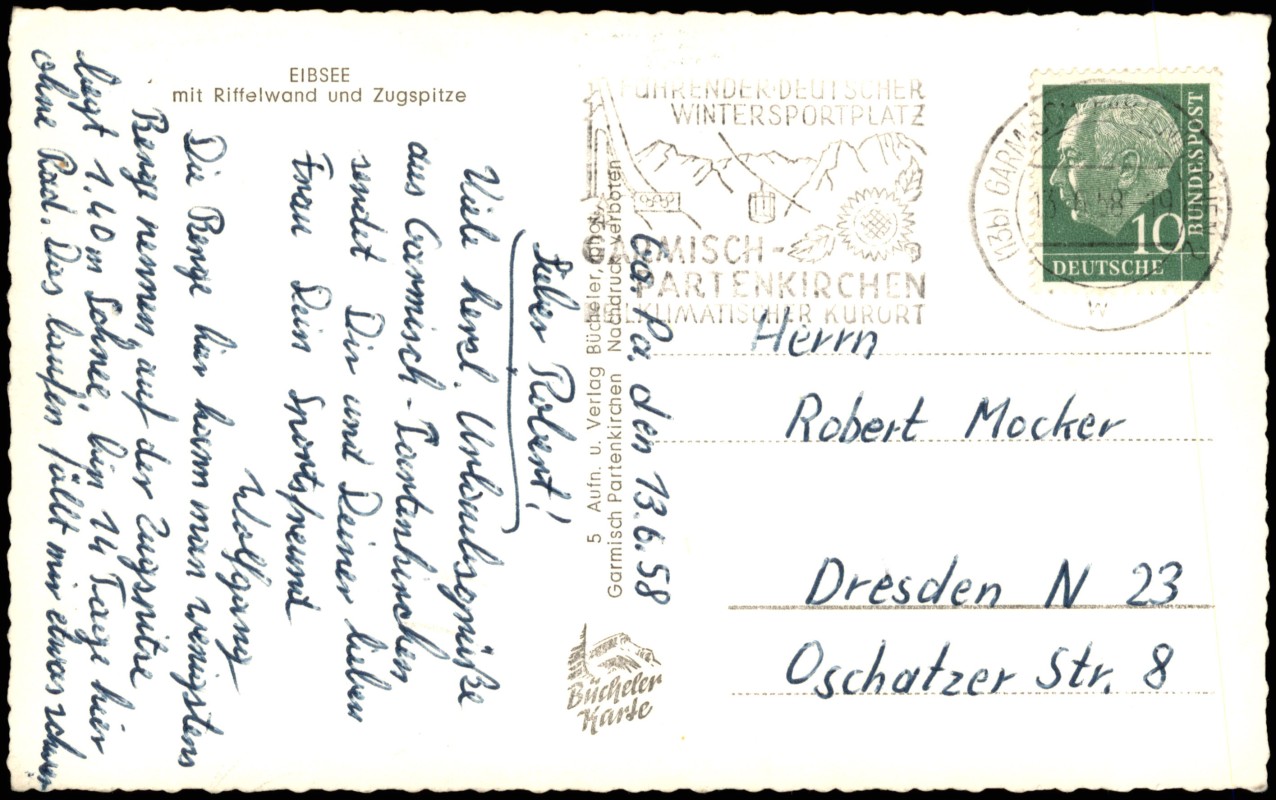 EIBSEE
mit Riffelwand und Zugspitze
Ga. Pa. den 13.6.58
Lieber Robert!
Viele herzl. Urlaubsgrüße
aus Garmisch-Partenkirchen
sendet Dir und Deiner lieben
Frau Dein Sportsfreund
Wolfgang
Die Berge hier kann man wenigstens
Berge nennen, auf der Zugspitze
liegt 1.40 m Schnee, bin 14 Tage hier
ohne Rad. Das laufen fällt mir etwas schwer
5 Aufn. u. Verlag Bücheler, Inh.
Garmisch Partenkirchen Nachdruck verboten
Bücheler
Karte
FÜHRENDER DEUTSCHER
WINTERSPORTPLATZ
GARMISCH-
PARTENKIRCHEN
HEILKLIMATISCHER KURORT
(13b) GARMISCH-PARTENKIRCHEN 2
58
19
w
BUNDESPOST
10
DEUTSCHE
Herrn
Robert Mocker
Dresden N 23
Oschatzer Str. 8